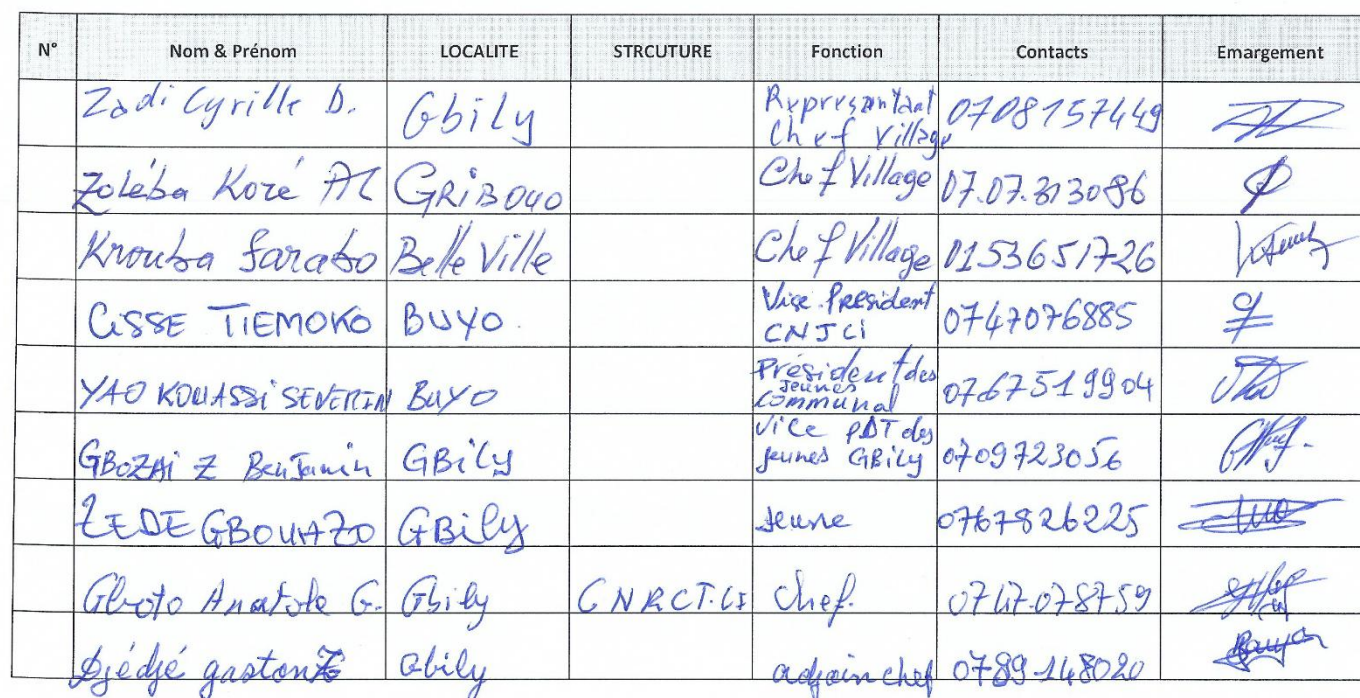 N° Nom & Prénom LOCALITE STRCUTURE Fonction Contacts Emargement
Zadi Cyrille D. Gbily Representant Chef Village 0708157449
Zoléba Koré AC GRIBOUO Chef Village 07.07.313086
Krouba Sarabo Belle Ville Chef Village 0153651726
CISSE TIEMOKO BUYO Vice President CNJCI 0747076885
YAO KOUASSI SEVERIN BUYO Président des jeunes communal 0767519904
GBOZAI Z Benjamin GBILY Vice PDT des jeunes GBILY 0709723056
ZEDE GBOUAZO GBily Jeune 0767826225
Gboto Anatole G. Gbily CNRCT.CI Chef. 0747.078759
Djédjé gaston Gbily adjoin chef 0789148020